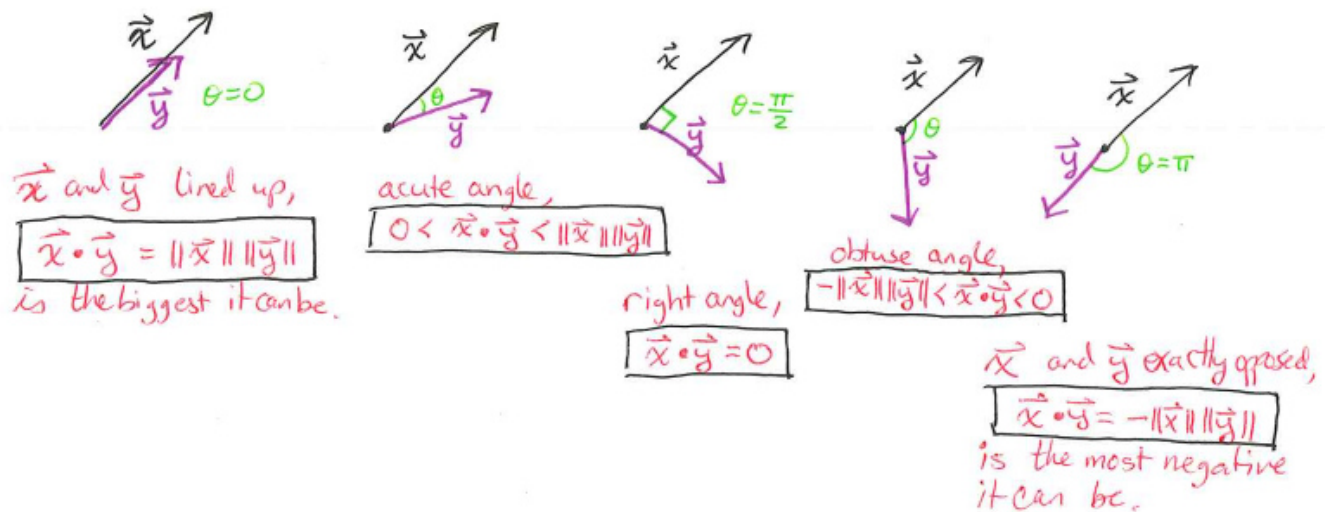 x⃗
y⃗
θ=0
x⃗ and y⃗ lined up,
x⃗ • y⃗ = ||x⃗|| ||y⃗||
is the biggest it can be.
x⃗
θ
y⃗
acute angle,
0 < x⃗ • y⃗ < ||x⃗|| ||y⃗||
x⃗
θ = π/2
y⃗
right angle,
x⃗ • y⃗ = 0
x⃗
θ
y⃗
obtuse angle,
-||x⃗|| ||y⃗|| < x⃗ • y⃗ < 0
x⃗
y⃗
θ=π
x⃗ and y⃗ exactly opposed,
x⃗ • y⃗ = -||x⃗|| ||y⃗||
is the most negative
it can be.